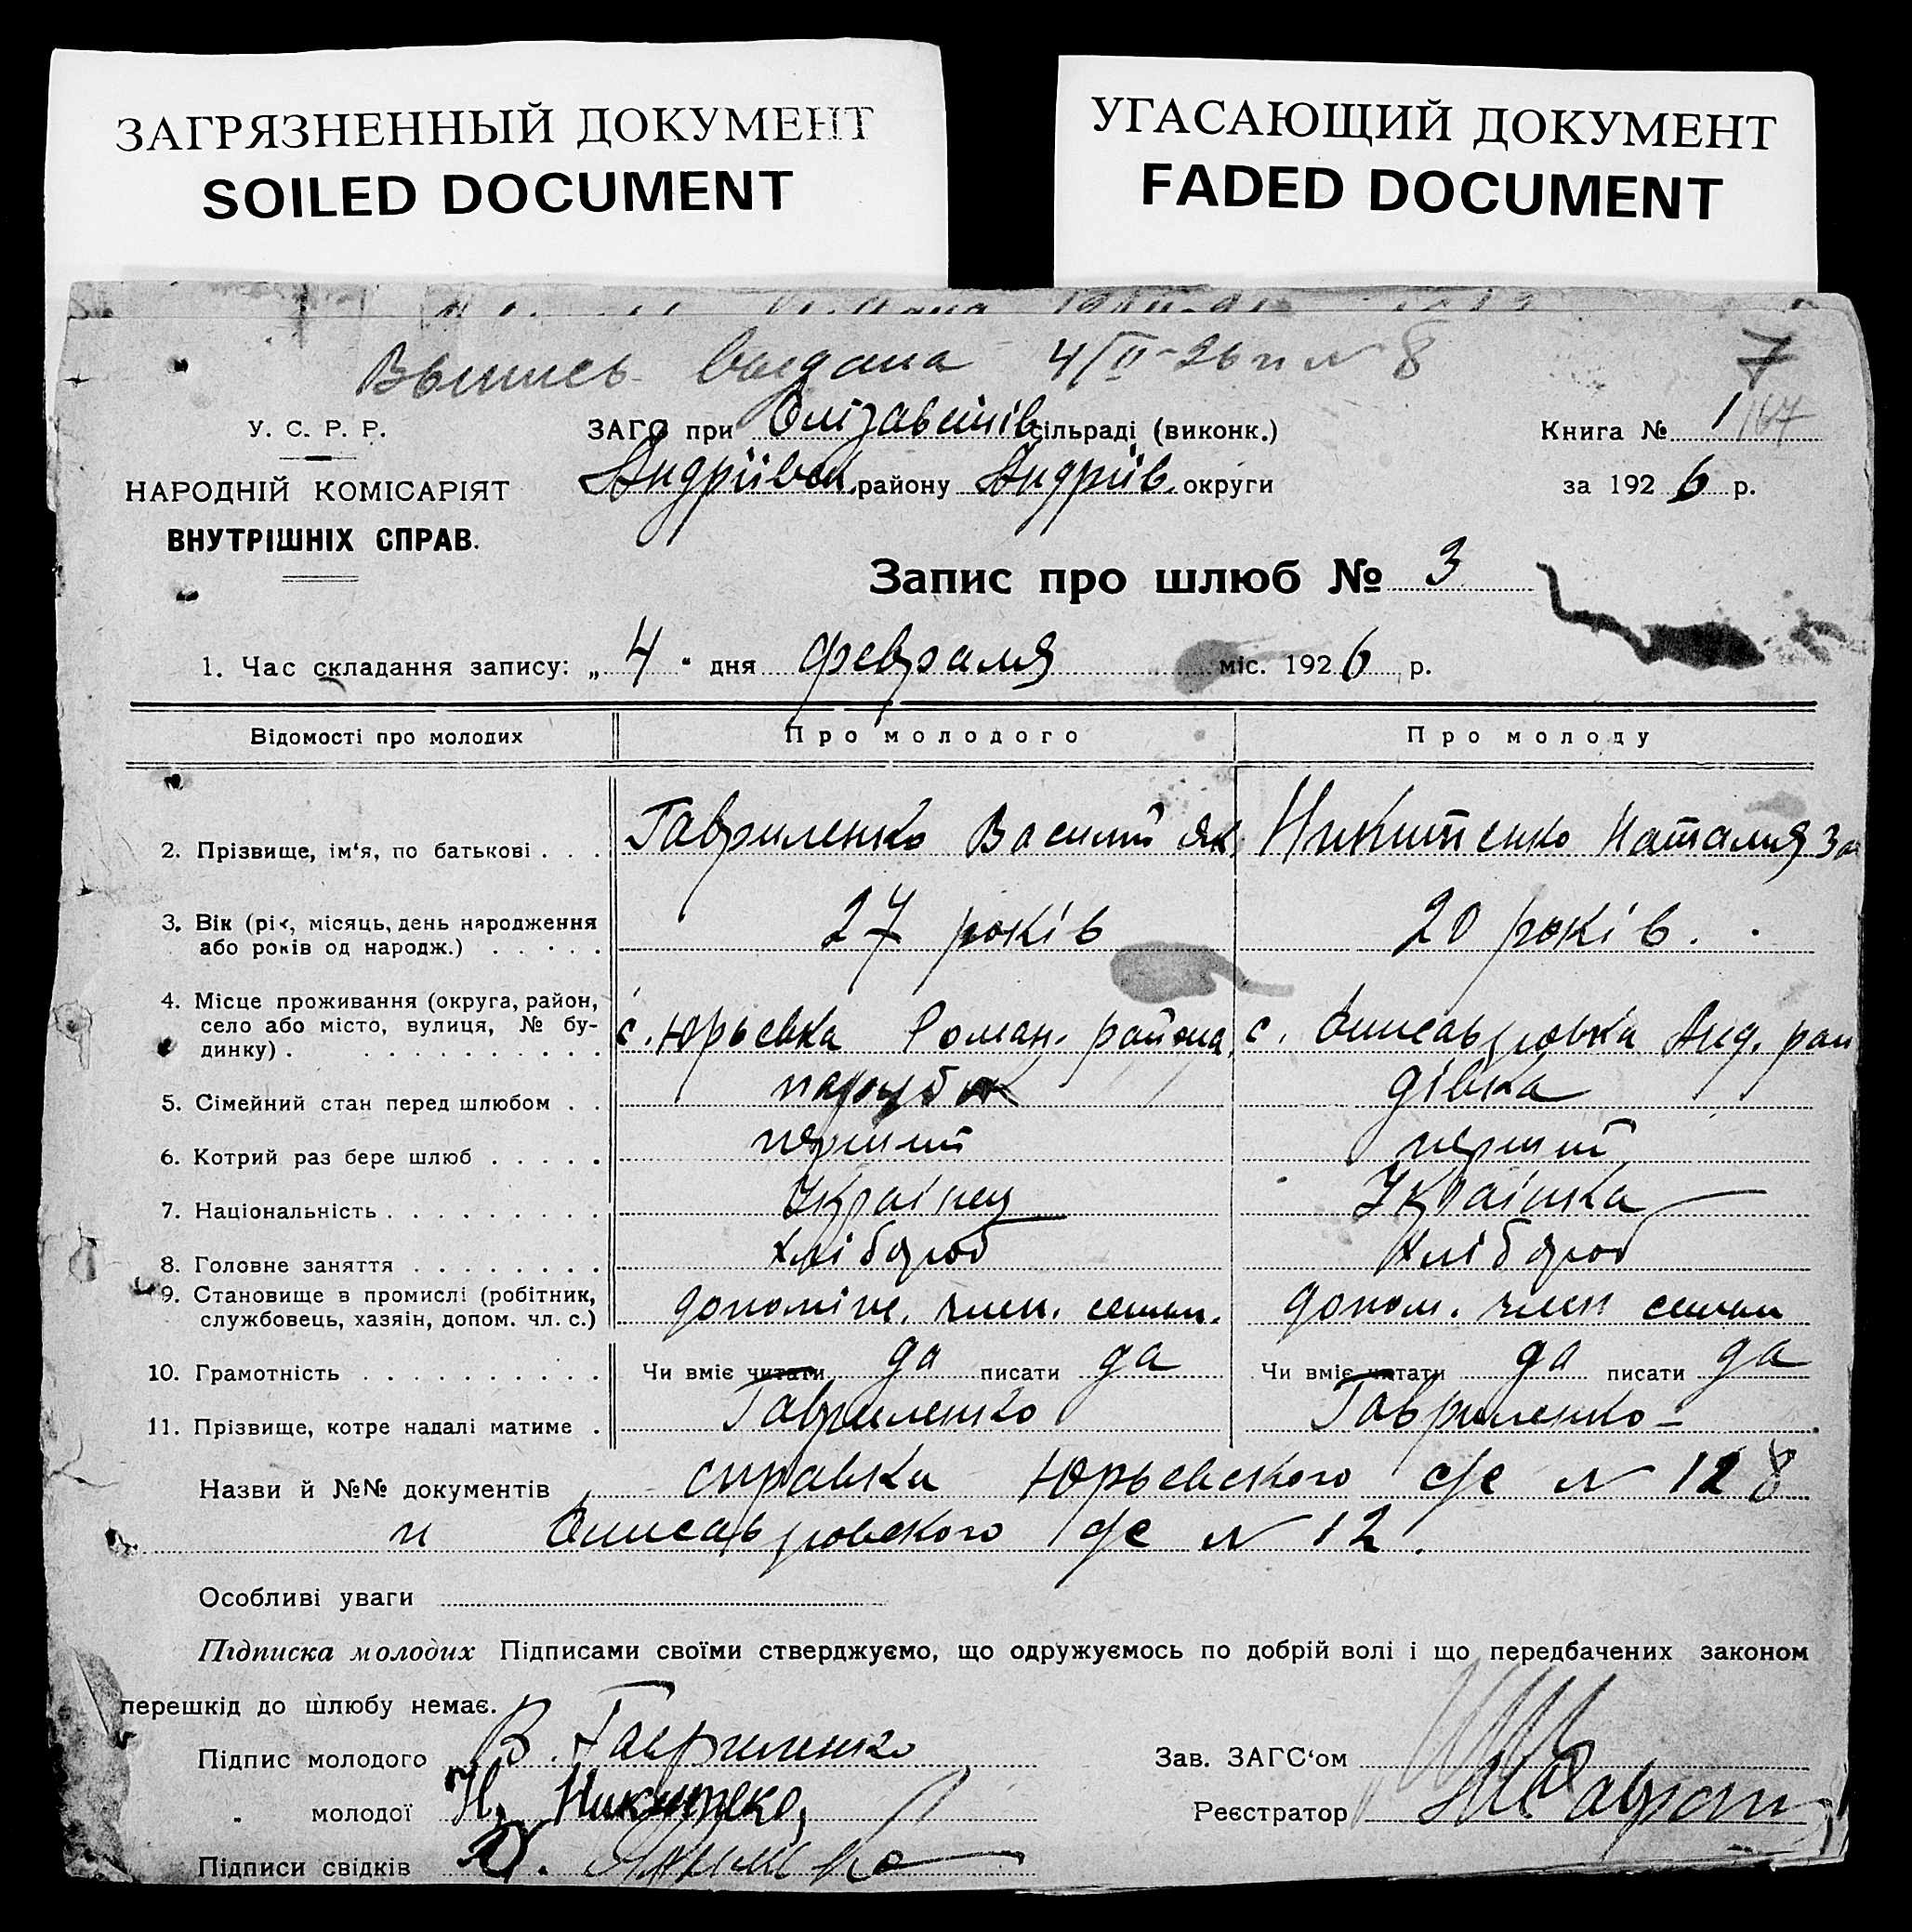 ЗАГРЯЗНЕННЫЙ ДОКУМЕНТ
SOILED DOCUMENT
УГАСАЮЩИЙ ДОКУМЕНТ
FADED DOCUMENT
Выпись выдана 4/II-26 N 8
7
У. С. Р. Р.
НАРОДНІЙ КОМІСАРІЯТ
ВНУТРІШНІХ СПРАВ.
ЗАГС при Єлізаветів сільраді (виконк.)
Андріївск. району Андріїв. округи
Книга № 1
за 1926 р.
Запис про шлюб № 3
1. Час складання запису: „ 4 " дня февраля міс. 1926 р.
Відомості про молодих Про молодого Про молоду
2. Прізвище, ім'я, по батькові . . . Гавриленко Василий Як. Никитенко Наталия За
3. Вік (рік, місяць, день народження
або років од народж.) . . . . . 27 років 20 років.
4. Місце проживання (округа, район,
село або місто, вулиця, № бу-
динку) . . . . . . . . . . . с. Юрьевка Роман. района, с. Анд. рай
5. Сімейний стан перед шлюбом . . парубок дівка
6. Котрий раз бере шлюб . . . . . перший перший
7. Національність . . . . . . . . . Українец Українка
8. Головне заняття . . . . . . . . хлібороб хлібороб
9. Становище в промислі (робітник,
службовець, хазяін, допом. чл. с.) член. семьи. допом. член семьи
10. Грамотність . . . . . . . . . . . Чи вміє читати да писати да Чи вміє читати да писати да
11. Прізвище, котре надалі матиме . Гавриленко Гавриленко
Назви й №№ документів справка Юрьевского с/с N 128
и с/с N 12.
Особливі уваги
Підписка молодих Підписами своїми стверджуємо, що одружуємось по добрій волі і що передбачених законом
перешкід до шлюбу немає.
Підпис молодого В. Гавриленко
Зав. ЗАГС'ом
„ молодої Н.
Реєстратор
Підписи свідків